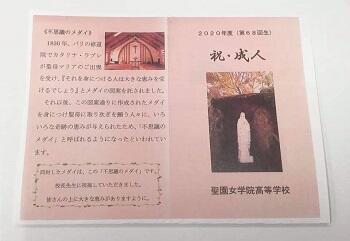 《不思議のメダイ》
1830年、パリの修道
院でカタリナ・ラブレ
が聖母マリアのご出現
を受け、『それを身につける人は大きな恵みを受
けるでしょう』とメダイの図案を託されました。
それ以後、この図案通りに作成されたメダイ
を身につけ聖母に取り次ぎを願う人々に、いろ
いろな奇跡の恵みが与えられたため、「不思議の
メダイ」と呼ばれるようになったといわれてい
ます。
同封したメダイは、この「不思議のメダイ」です。
校長先生に祝福していただきました。
皆さんの上に大きな恵みがありますように。
2020年度（第68回生）
祝・成人
聖園女学院高等学校